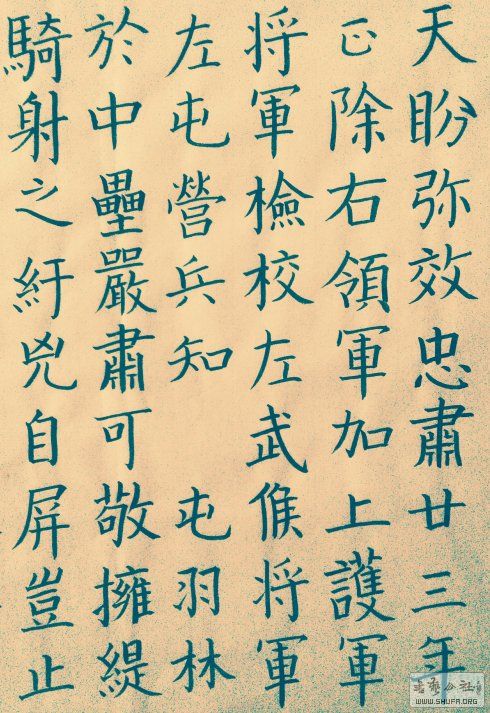 天盼弥效忠肅廿三年
正除右領軍加上護軍
将軍檢校左武候将軍
左屯營兵知 屯羽林
於中壘嚴肅可敬擁緹
騎射之紆兇自屏豈止
WWW.SHUFA.ORG